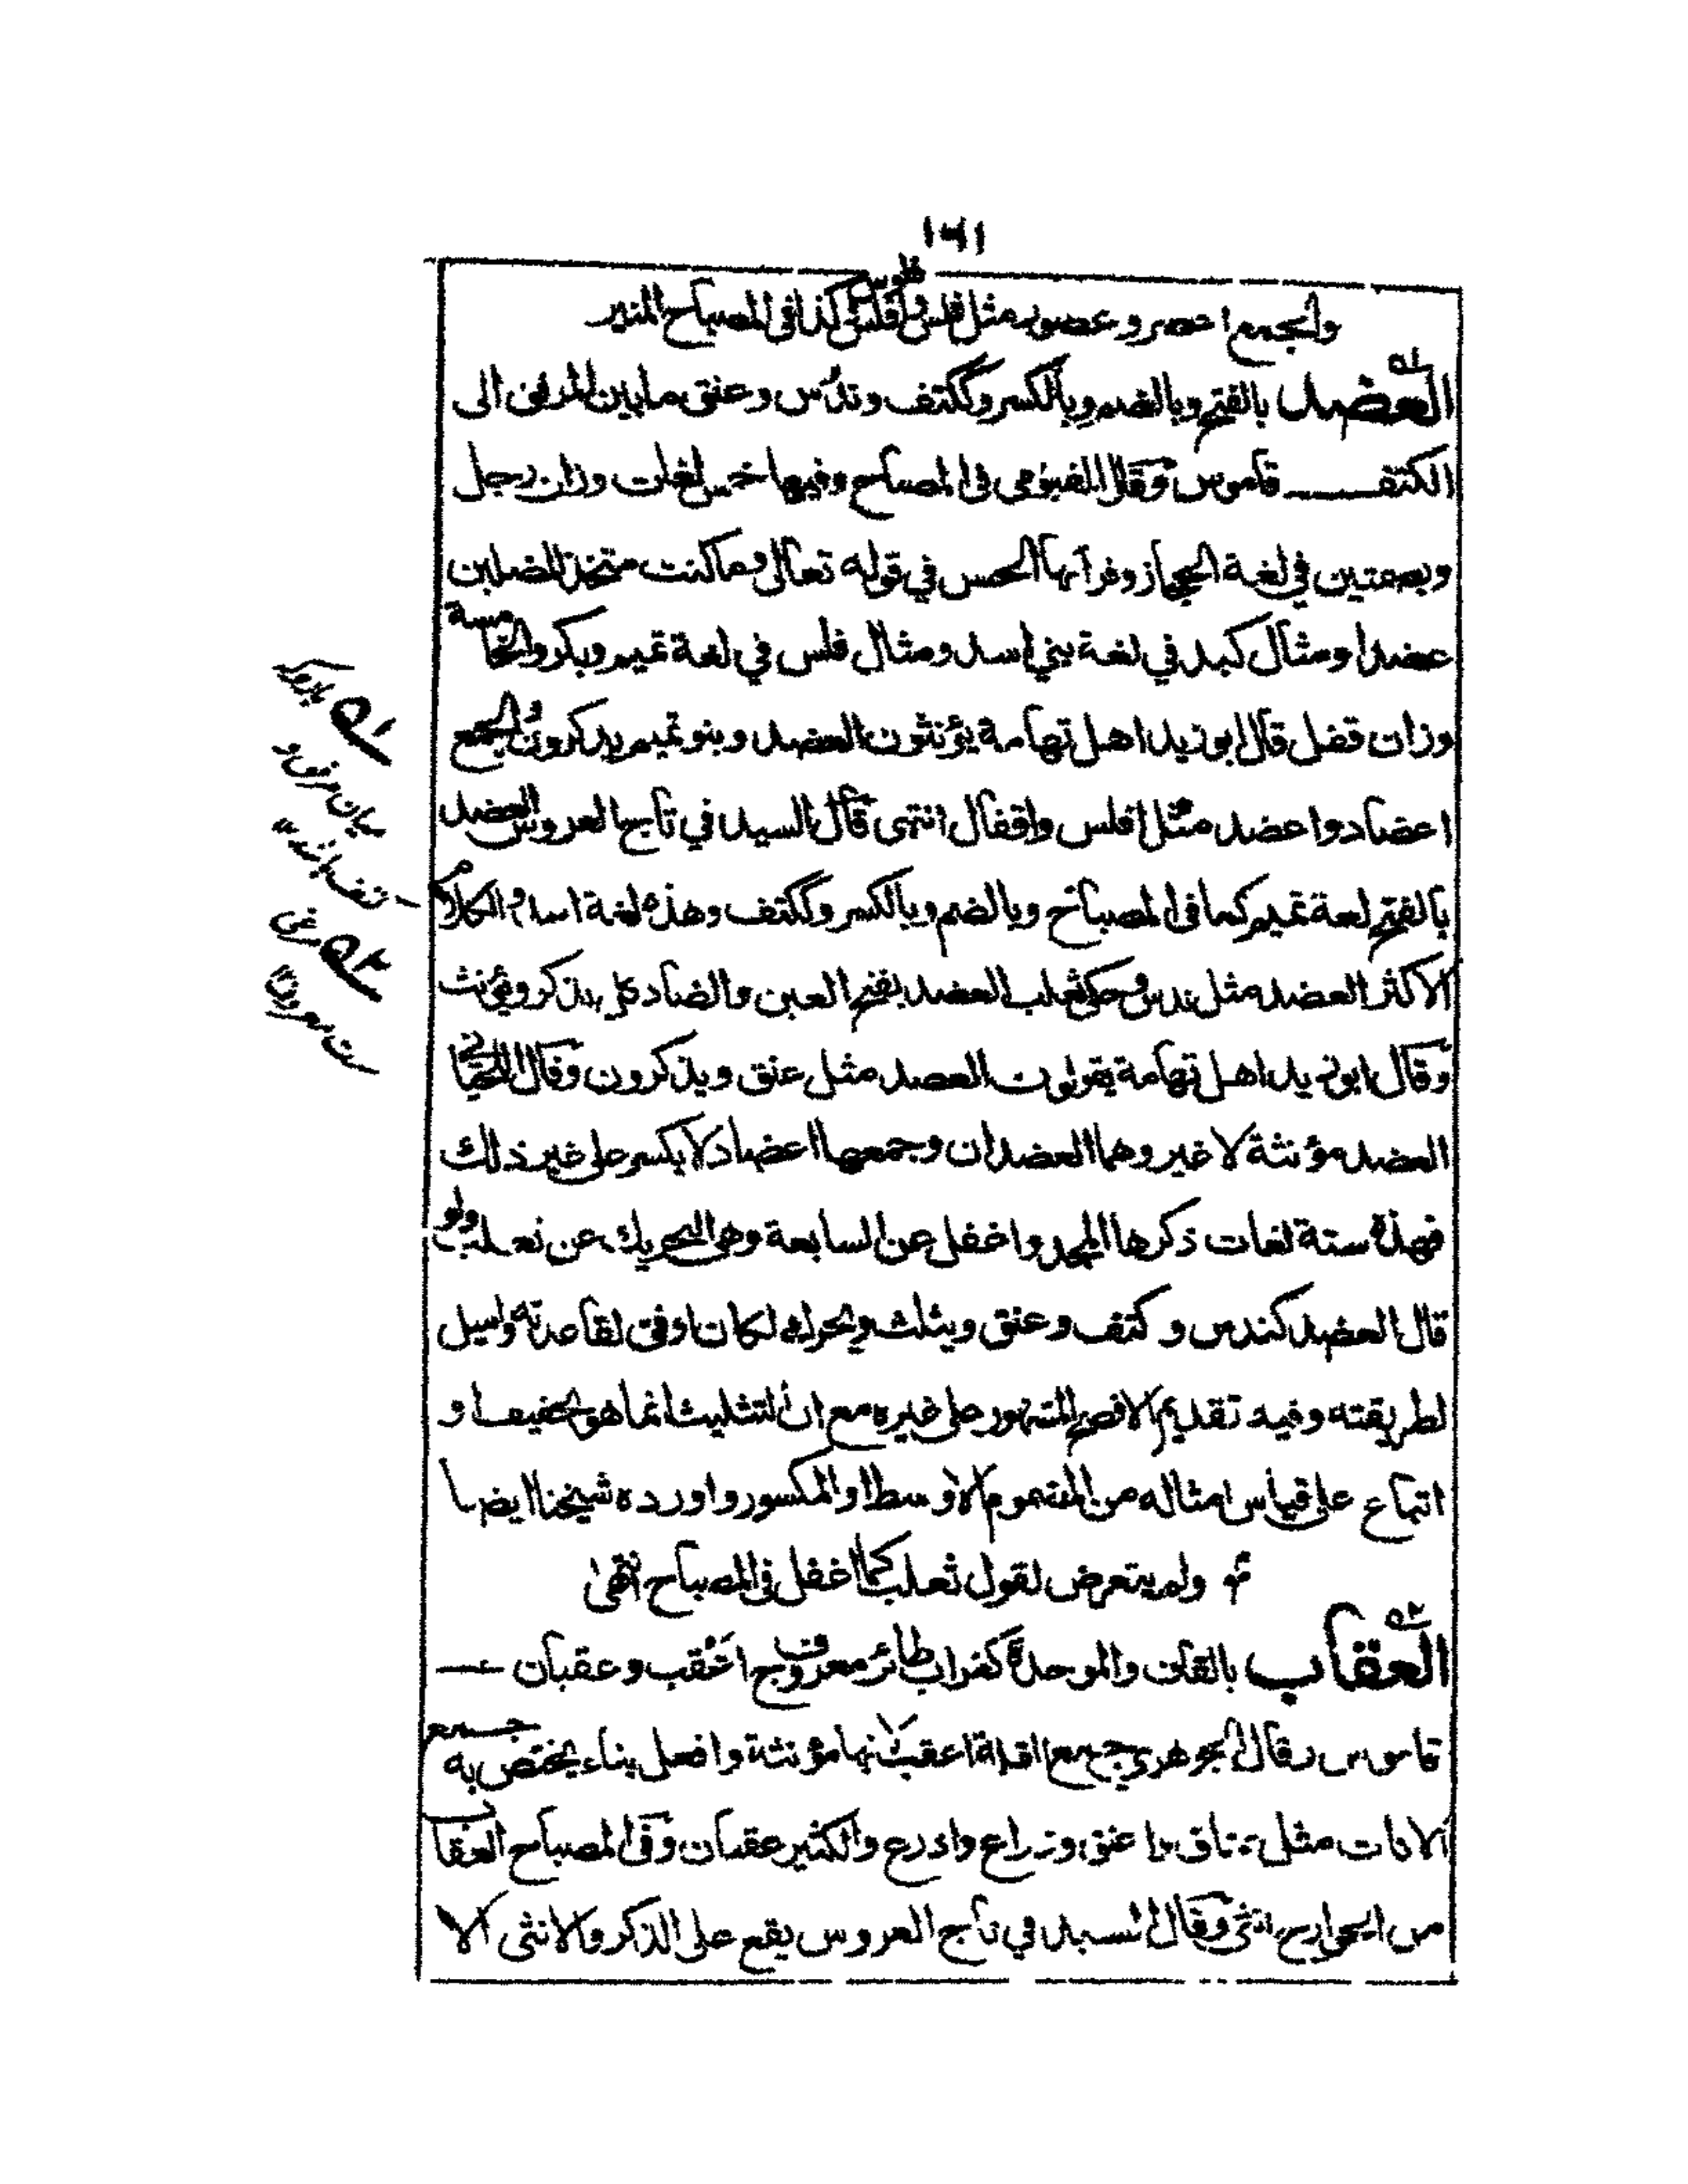 ١٦١
والجمع اعصر وعصور مثل فلس وافلس وفلوس كذا في المصباح المنير
العضد بالفتح وبالضم وبالكسر وككتف وندس وعنق ما بين المرفق الى
الكتف قاموس وقال الفيومي في المصباح وفيها خمس لغات وزان رجل
وبضمتين في لغة الحجاز وقرأ بها الحسن في قوله تعالى وما كنت متخذ المضلين
عضدا ومثال كبد في لغة بني اسد ومثال فلس في لغة تميم وبكر والخامسة
وزان قفل قال ابو زيد اهل تهامة يؤنثون العضد وبنو تميم يذكرون والجمع
اعضاد واعضد مثل افلس واقفال انتهى قال السيد في تاج العروس العضد
بالفتح لغة تميم كما في المصباح وبالضم وبالكسر وككتف وهذه لغة اسد والكلام
الاكثر العضد مثل ندس وحكى ثعلب العضد بفتح العين والضاد كل يذكر ويؤنث
وقال ابو زيد اهل تهامة يقولون العضد مثل عنق ويذكرون وقال اللحياني
العضد مؤنثة لا غير وهما العضدان وجمعها اعضاد لا يكسر على غير ذلك
فهذه ستة لغات ذكرها المجد واغفل عن السابعة وهي التحريك عن ثعلب ولو
قال العضد كندس وكتف وعنق ويثلث ويحرك لكان اوفق لقاعدته واسيل
لطريقته وفيه تقديم الافصح المشهور على غيره مع ان التثليث انما هو تخفيف او
اتباع على قياس امثاله من المضموم الاوسط او المكسور واورده شيخنا ايضا
ولم يتعرض لقول ثعلب كما اغفل في المصباح انتهى
العقاب بالقاف والموحدة كغراب طائر معروف ج اعقب وعقبان
قاموس وقال الجوهري جمع القلة اعقب لانها مؤنثة وافعل بناء يختص به جمع
الاناث مثل عناق واعنق وذراع واذرع والكثير عقبان وفي المصباح العقاب
من الجوارح انثى وقال السيد في تاج العروس يقع على الذكر والانثى الا
٥١ بازو كه
ميان مرفق و
كتف باشد
٥٢